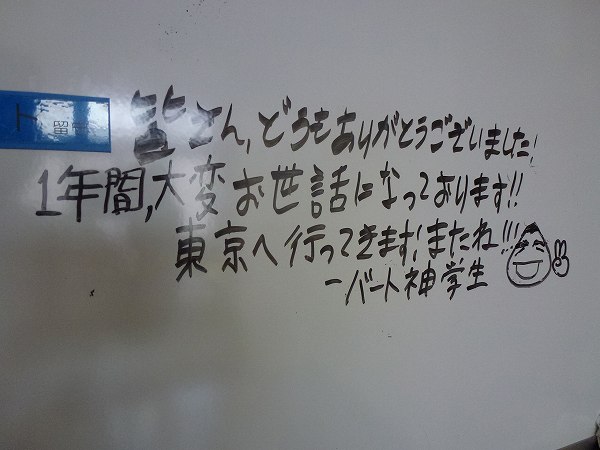 ト 留
皆さん,どうもありがとうございました!
1年間,大変お世話になっております!!
東京へ行ってきます!またね!!!
ーバート神学生